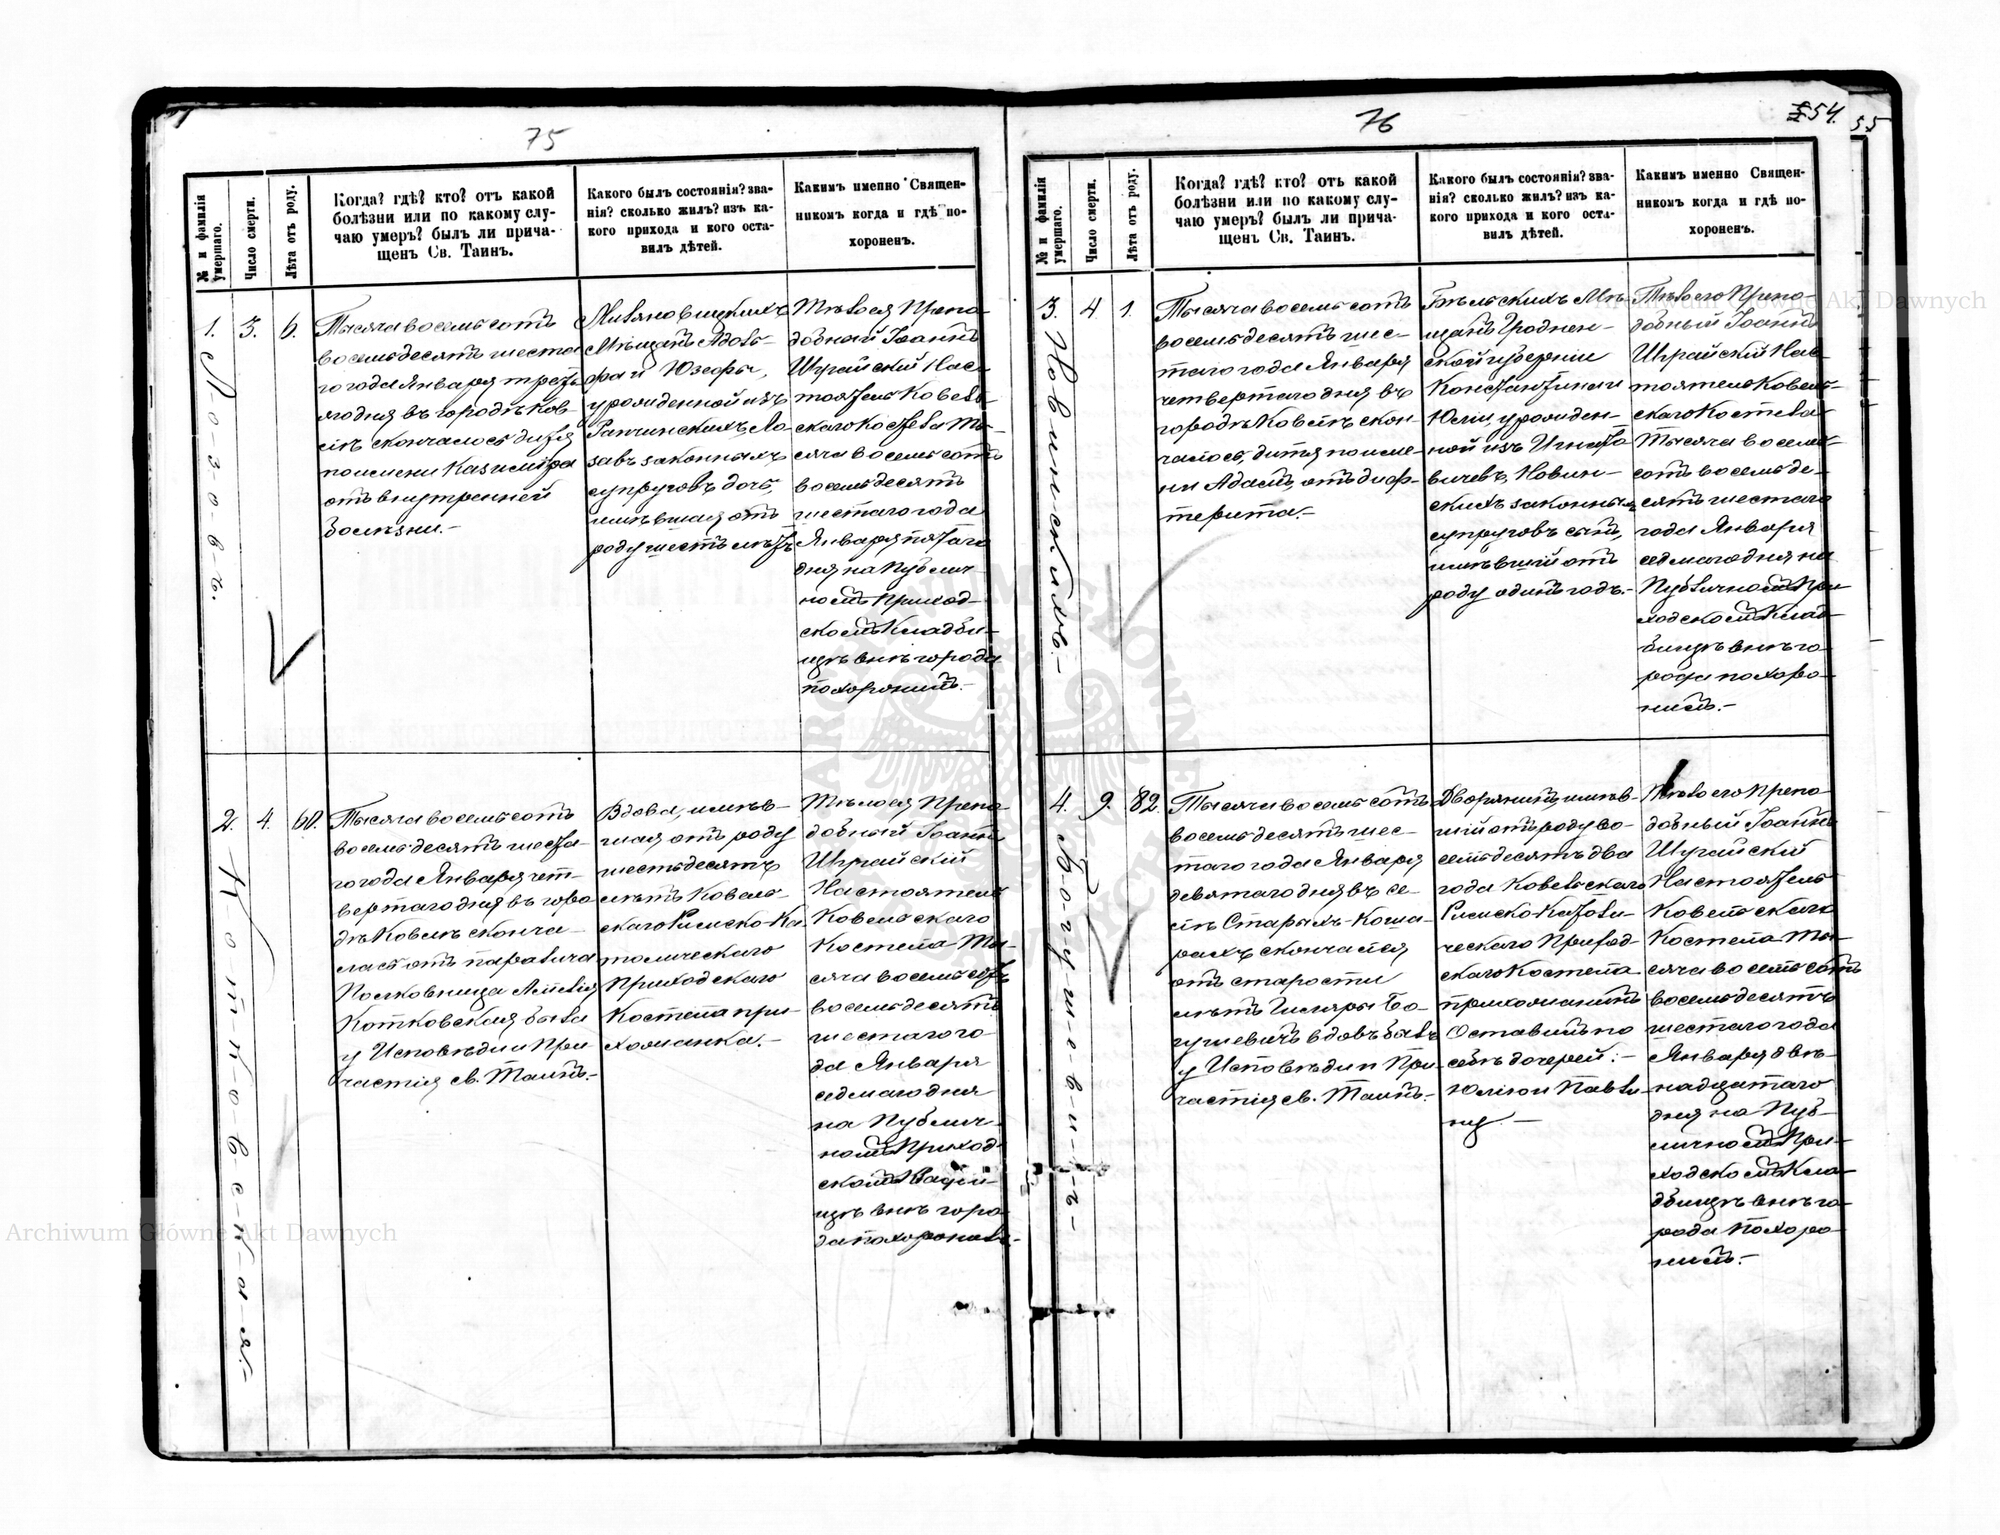 75
№ и фамилія умершаго.
Число смерти.
Лѣта отъ роду.
Когда? гдѣ? кто? отъ какой
болѣзни или по какому слу-
чаю умеръ? былъ ли прича-
щенъ Св. Таинъ.
Какого былъ состоянія? зва-
нія? сколько жилъ? изъ ка-
кого прихода и кого оста-
вилъ дѣтей.
Какимъ именно Священ-
никомъ когда и гдѣ по-
хороненъ.
1.
Лозовъ.
3.
6.
Тысяча восемьсотъ
восемьдесятъ шеста
го года Января треть
яго дня въ городѣ Ков
лѣ скончалось дитя
по имени Казиміра
отъ внутренней
болѣзни.-
Мѣщанъ Адоль-
фа и Юзефы,
урожденной изъ
Ранчинскихъ, Ло-
завъ законныхъ
супруговъ дочь,
имѣвшая отъ
роду шесть лѣтъ
Тѣло ея Препо-
добный Іоаннъ
Шурайскій Нас-
тоятель Ковель-
скаго Костела ты-
сяча восемьсотъ
восемьдесятъ
шестаго года
Января пятаго
дня на Публич-
номъ Приход-
скомъ Кладби-
щѣ внѣ города
похоронилъ.-
2.
Котковская.
4.
60.
Тысяча восемьсотъ
восемьдесятъ шеста-
го года Января чет-
вертаго дня въ горо-
дѣ Ковлѣ сконча-
лась отъ паралича
Полковница
Котковская была
у Исповѣди и При
частія св. Таинъ.-
Вдова, имѣв-
шая отъ роду
шестьдесятъ
лѣтъ Ковель-
скаго Римско-Ка-
толическаго
Приходскаго
Костела при-
хожанка.-
Тѣло ея Препо
добный Іоаннъ
Шурайскій
Настоятель
Ковельскаго
Костела Ты-
сяча восемьсотъ
восемьдесятъ
шестаго го-
да Января
седмаго дня
на Публич-
номъ Приход-
скомъ
щѣ внѣ горо-
да похоронилъ-
76
54.
55
№ и фамилія умершаго.
Число смерти.
Лѣта отъ роду.
Когда? гдѣ? кто? отъ какой
болѣзни или по какому слу-
чаю умеръ? былъ ли прича-
щенъ Св. Таинъ.
Какого былъ состоянія? зва-
нія? сколько жилъ? изъ ка-
кого прихода и кого оста-
вилъ дѣтей.
Какимъ именно Священ-
никомъ когда и гдѣ по-
хороненъ.
3.
Новинскихъ.-
4
1.
Тысяча восемьсотъ
восемьдесятъ шес-
таго года Января
четвертаго дня въ
городѣ Ковлѣ скон-
чалось, дитя по име-
ни Адамъ, отъ диф-
терита.-
Бѣльскихъ Мѣ-
щанъ Гроднен-
ской губерніи
Константина и
Юліи, урожден-
ной изъ Игнато
вичевъ, Новин-
скихъ законныхъ
супруговъ сынъ,
имѣвшій отъ
роду одинъ годъ.-
Тѣло его Препо-
добный Іоаннъ
Шурайскій Нас-
тоятель Ковель-
скаго Костела
Тысяча восемь-
сотъ восемьде-
сятъ шестаго
года Января
седмаго дня на
Публичномъ При-
ходскомъ Клад-
бищѣ внѣ го-
рода похоро-
нилъ.-
4.
Богушевичъ-
9.
82.
Тысяча восемьсотъ
восемьдесятъ шес-
таго года Января
девятаго дня въ се-
лѣ Старыхъ Коша-
рахъ скончался
отъ старости
лѣтъ Гиляры Бо-
гушевичъ вдовъ былъ
у Исповѣди и При-
частія св. Таинъ.-
Дворянинъ, имѣв-
шій отъ роду во-
семьдесятъ два
года Ковельскаго
Римско-Католи-
ческаго Приход-
скаго Костела
прихожанинъ
Оставилъ по
себѣ дочерей:-
Юлію и Павли-
ну.-
Тѣло его Препо
добный Іоаннъ
Шурайскій
Настоятель
Ковельскаго
Костела Ты-
сяча восемьсотъ
восемьдесятъ
шестаго года
Января двѣ-
надцатаго
дня на Пуб-
личномъ При-
ходскомъ Кла-
дбищѣ внѣ го-
рода похоро-
нилъ.-
Archiwum Główne Akt Dawnych
Archiwum Główne Akt Dawnych
ARCHIWUM GŁÓWNE